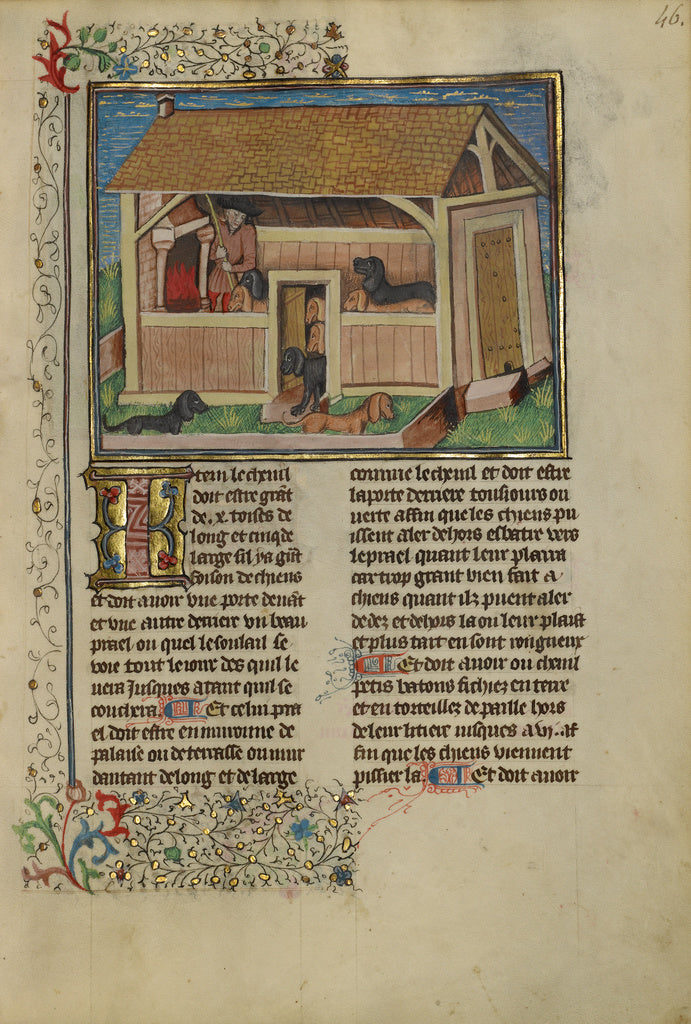 46.
Item le chenil
doit estre grāt
de .x. toises de
long et cinq de
large sil ya grāt
foison de chiens
et doit auoir vne porte deuāt
et vne autre derriere vn beau
prael ou quel le soulail se
voie tout le iour des quil le
uera Jusques atant quil se
couchera Et celui pra
el doit estre enuironne de
palaise ou de terrasse ou mur
dautant de long et de large
comme le chenil et doit estre
la porte derriere tousiours ou
uerte affin que les chiens pu
issent aler dehors esbatre vers
le prael quant leur plaira
car trop grant bien fait a
chiens quant ilz pueent aler
dedez et dehors la ou leur plaist
et plus tart en sont rongneux
Et doit auoir ou chenil
petis batons fichiez en terre
et en torteillez de paille hors
de leur litiere iusques a vj. af
fin que les chiens viennent
pissier la. Et doit auoir